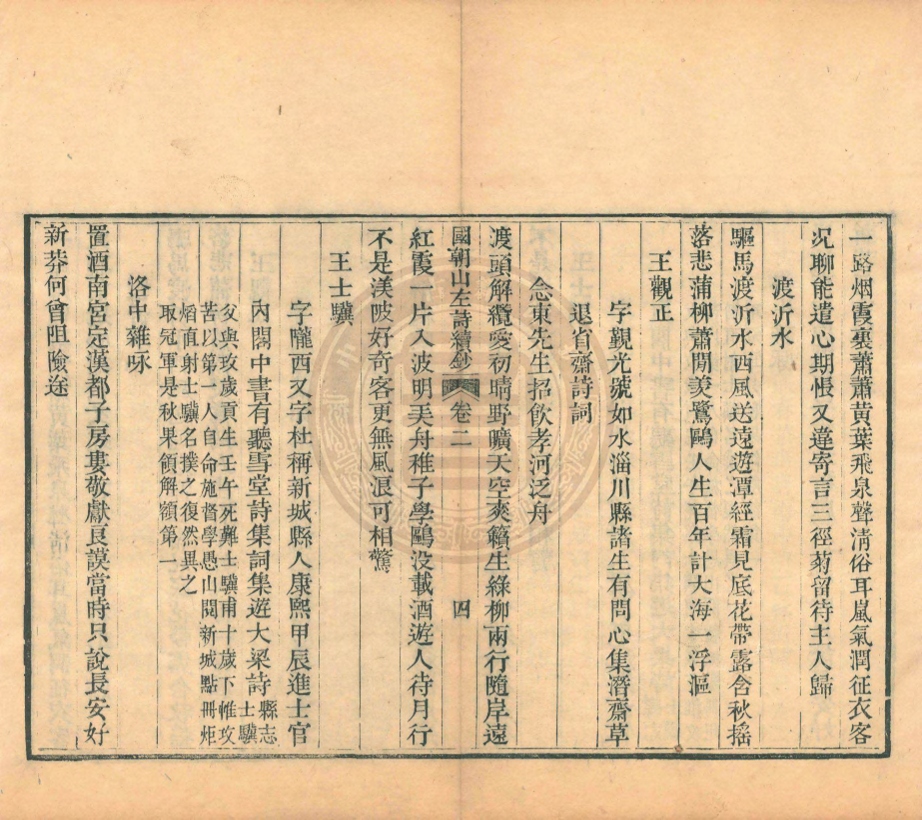 一路烟霞裏蕭蕭黄葉飛泉聲清俗耳嵐氣潤征衣客
况聊能遣心期悵又違寄言三徑菊留待主人歸
渡沂水
驅馬渡沂水西風送遠遊潭經霜見底花帶露含秋搖
落悲蒲柳蕭閒羡鷺鷗人生百年計大海一浮漚
王觀正
字觐光號如水淄川縣諸生有問心集潛齋草
退省齋詩詞
念東先生招飲孝河泛舟
渡頭解纜愛初晴野曠天空爽籟生綠柳兩行隨岸遠
國朝山左詩續鈔 卷二 四
紅霞一片入波明弄舟稚子學鷗没載酒遊人待月行
不是渼陂好奇客更無風浪可相驚
王士驥
字隴西又字杜稱新城縣人康熙甲辰進士官
內閣中書有聽雪堂詩集詞集遊大梁詩
縣志士驥
父與玫歲貢生壬午死難士驥甫十歲下帷攻
苦以第一人自命施督學愚山閱新城點冊炬
焰直射士驥名撲之復然異之
取冠軍是秋果領解額第一
洛中雜咏
置酒南宮定漢都子房婁敬獻良謨當時只說長安好
新莽何曾阻險途